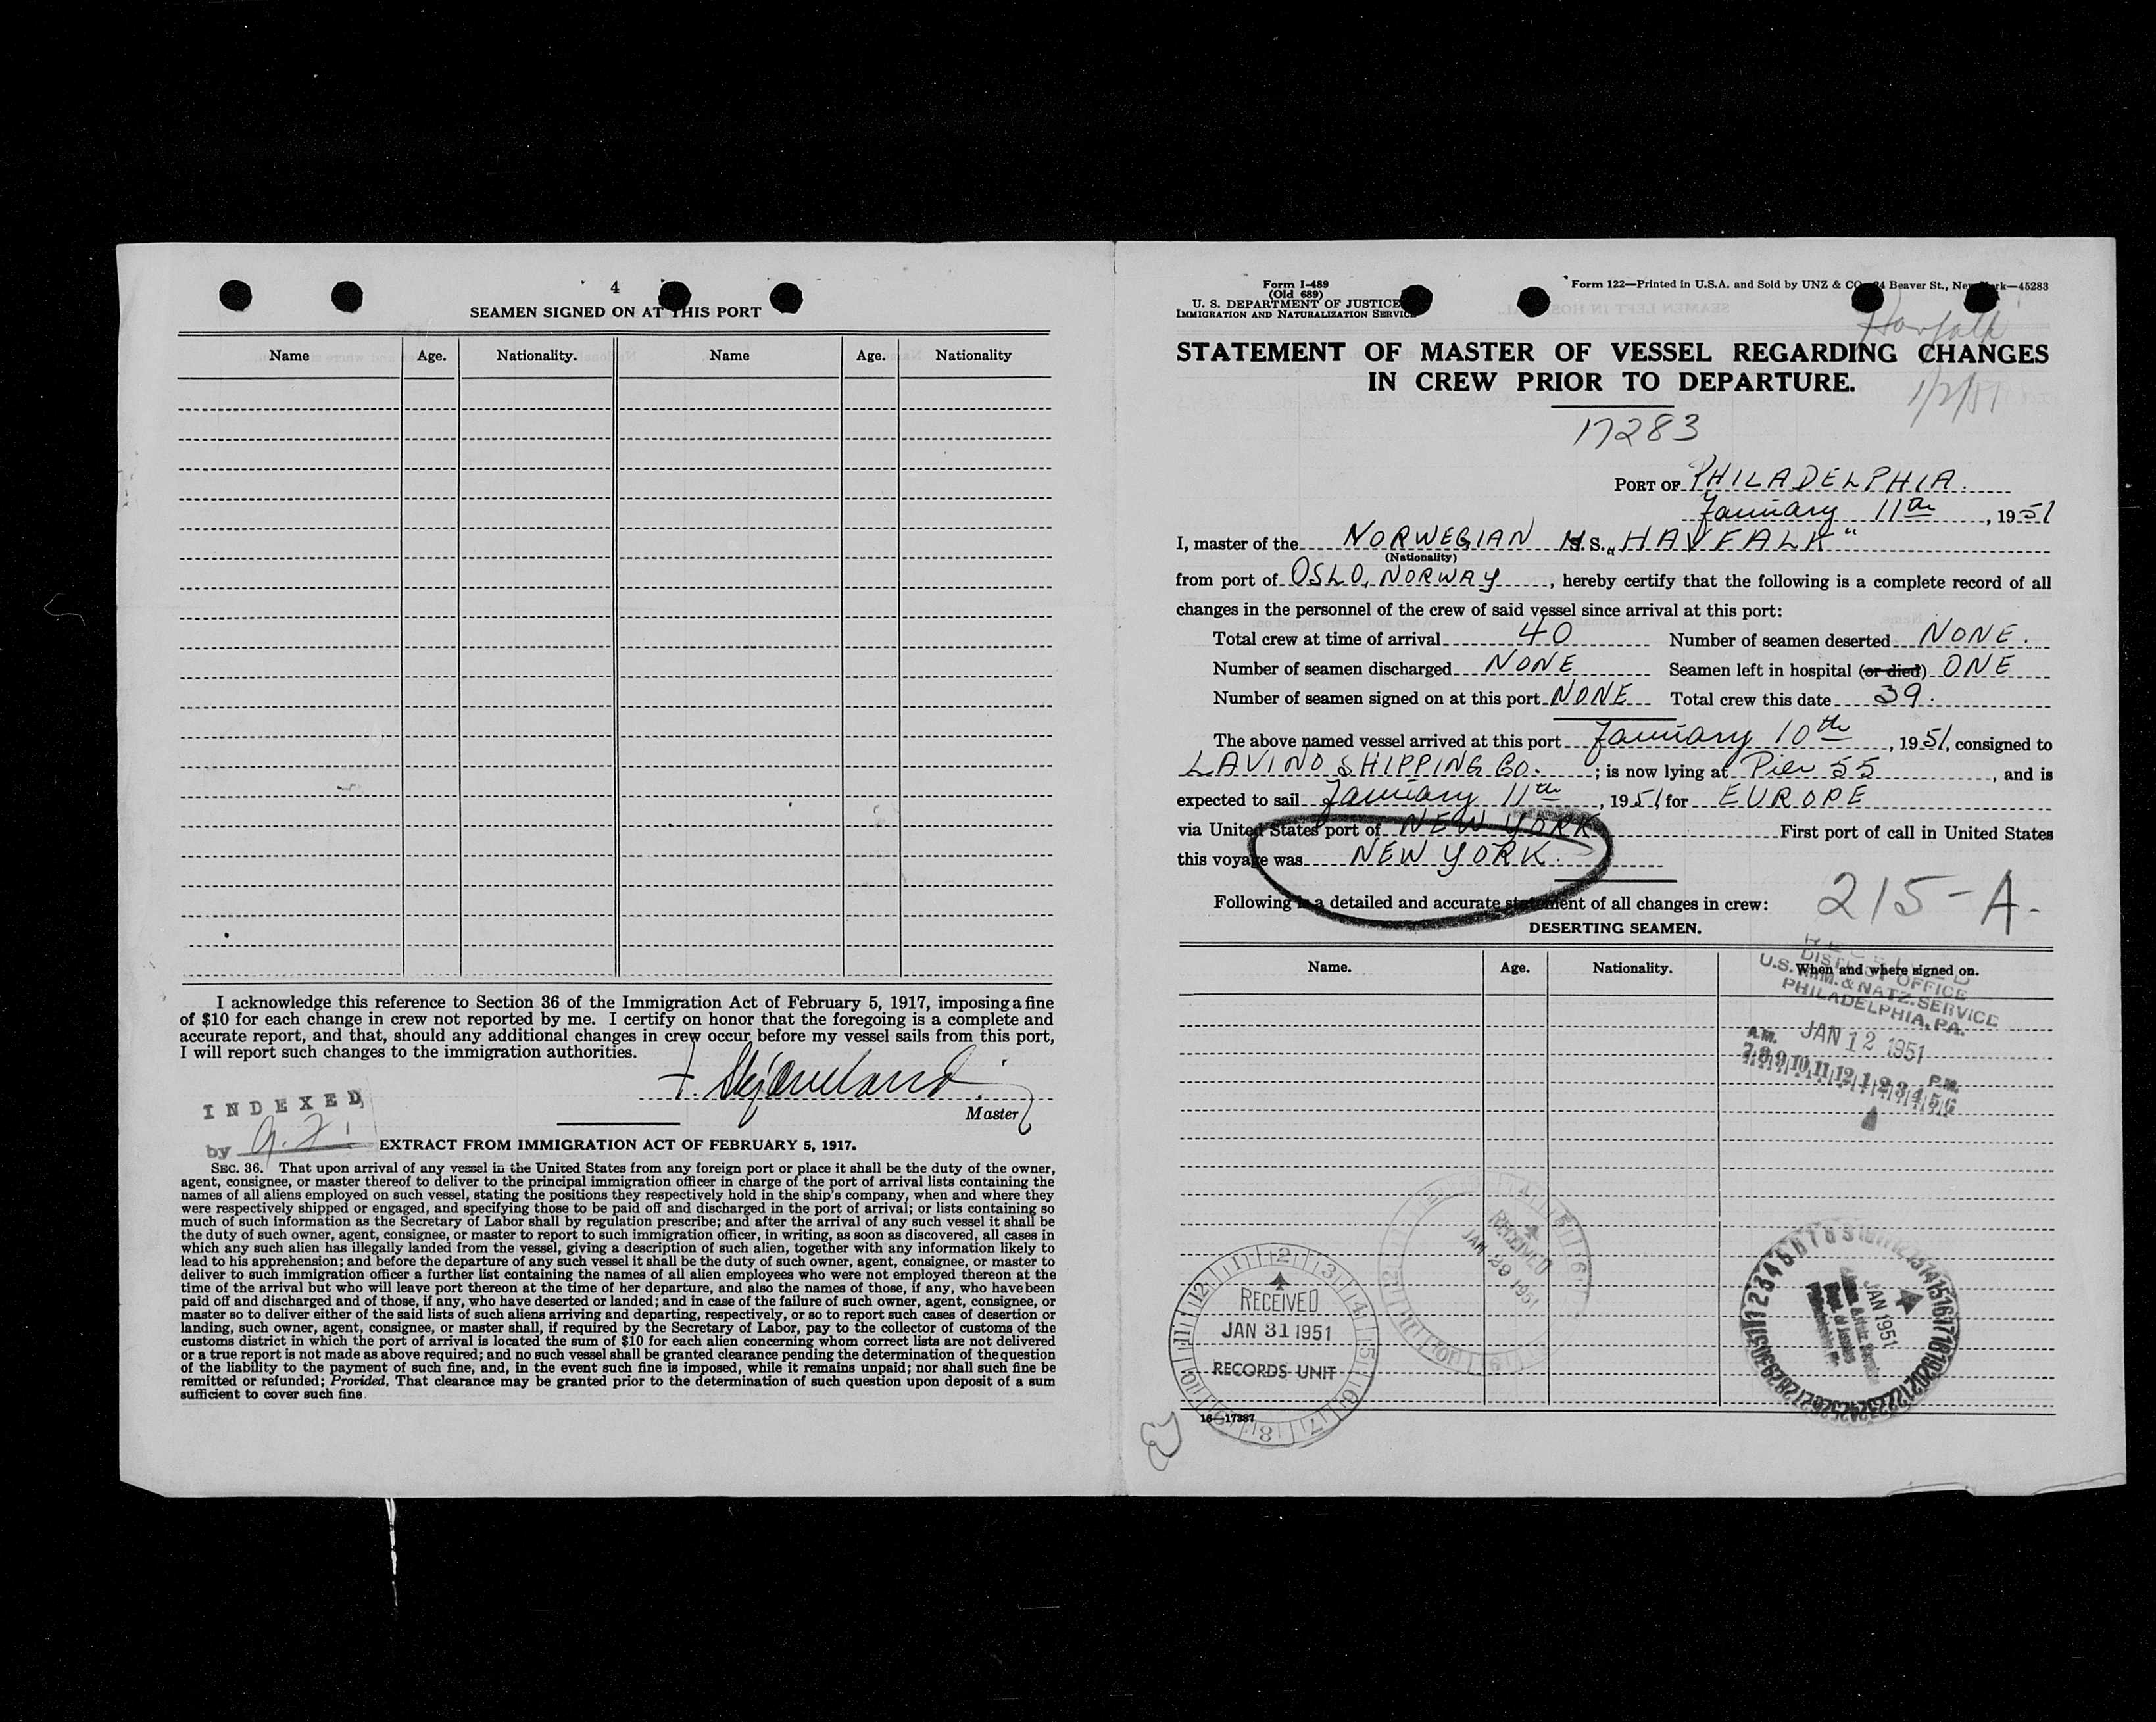 4
SEAMEN SIGNED ON AT THIS PORT
Name Age. Nationality. Name Age. Nationality
I acknowledge this reference to Section 36 of the Immigration Act of February 5, 1917, imposing a fine
of $10 for each change in crew not reported by me. I certify on honor that the foregoing is a complete and
accurate report, and that, should any additional changes in crew occur before my vessel sails from this port,
I will report such changes to the immigration authorities.
Master
INDEXED
by
EXTRACT FROM IMMIGRATION ACT OF FEBRUARY 5, 1917.
SEC. 36. That upon arrival of any vessel in the United States from any foreign port or place it shall be the duty of the owner,
agent, consignee, or master thereof to deliver to the principal immigration officer in charge of the port of arrival lists containing the
names of all aliens employed on such vessel, stating the positions they respectively hold in the ship's company, when and where they
were respectively shipped or engaged, and specifying those to be paid off and discharged in the port of arrival; or lists containing so
much of such information as the Secretary of Labor shall by regulation prescribe; and after the arrival of any such vessel it shall be
the duty of such owner, agent, consignee, or master to report to such immigration officer, in writing, as soon as discovered, all cases in
which any such alien has illegally landed from the vessel, giving a description of such alien, together with any information likely to
lead to his apprehension; and before the departure of any such vessel it shall be the duty of such owner, agent, consignee, or master to
deliver to such immigration officer a further list containing the names of all alien employees who were not employed thereon at the
time of the arrival but who will leave port thereon at the time of her departure, and also the names of those, if any, who have been
paid off and discharged and of those, if any, who have deserted or landed; and in case of the failure of such owner, agent, consignee, or
master so to deliver either of the said lists of such aliens arriving and departing, respectively, or so to report such cases of desertion or
landing, such owner, agent, consignee, or master shall, if required by the Secretary of Labor, pay to the collector of customs of the
customs district in which the port of arrival is located the sum of $10 for each alien concerning whom correct lists are not delivered
or a true report is not made as above required; and no such vessel shall be granted clearance pending the determination of the question
of the liability to the payment of such fine, and, in the event such fine is imposed, while it remains unpaid; nor shall such fine be
remitted or refunded; Provided, That clearance may be granted prior to the determination of such question upon deposit of a sum
sufficient to cover such fine.
Form I-489
(Old 689)
U. S. DEPARTMENT OF JUSTICE
IMMIGRATION AND NATURALIZATION SERVICE
Form 122—Printed in U.S.A. and Sold by UNZ & CO. 24 Beaver St., New York—45283
Norfolk
1/2/51
STATEMENT OF MASTER OF VESSEL REGARDING CHANGES
IN CREW PRIOR TO DEPARTURE.
17283
PORT OF PHILADELPHIA.
January 11th, 1951
I, master of the NORWEGIAN M.S. "HAVFALK"
(Nationality)
from port of OSLO, NORWAY, hereby certify that the following is a complete record of all
changes in the personnel of the crew of said vessel since arrival at this port:
Total crew at time of arrival 40 Number of seamen deserted NONE.
Number of seamen discharged NONE Seamen left in hospital (or died) ONE
Number of seamen signed on at this port NONE Total crew this date 39.
The above named vessel arrived at this port January 10th, 1951, consigned to
LAVINO SHIPPING CO.; is now lying at Pier 55, and is
expected to sail January 11th, 1951 for EUROPE
via United States port of NEW YORK First port of call in United States
this voyage was NEW YORK.
Following is a detailed and accurate statement of all changes in crew:
215-A-
DESERTING SEAMEN.
Name. Age. Nationality. When and where signed on.
RECEIVED
DISTRICT OFFICE
U.S. IMM. & NATZ. SERVICE
PHILADELPHIA, PA.
A.M. JAN 12 1951 P.M.
7 8 9 10 11 12 1 2 3 4 5 6
RECEIVED
JAN 29 1951
RECEIVED
JAN 31 1951
RECORDS UNIT
JAN 1951
16—17387